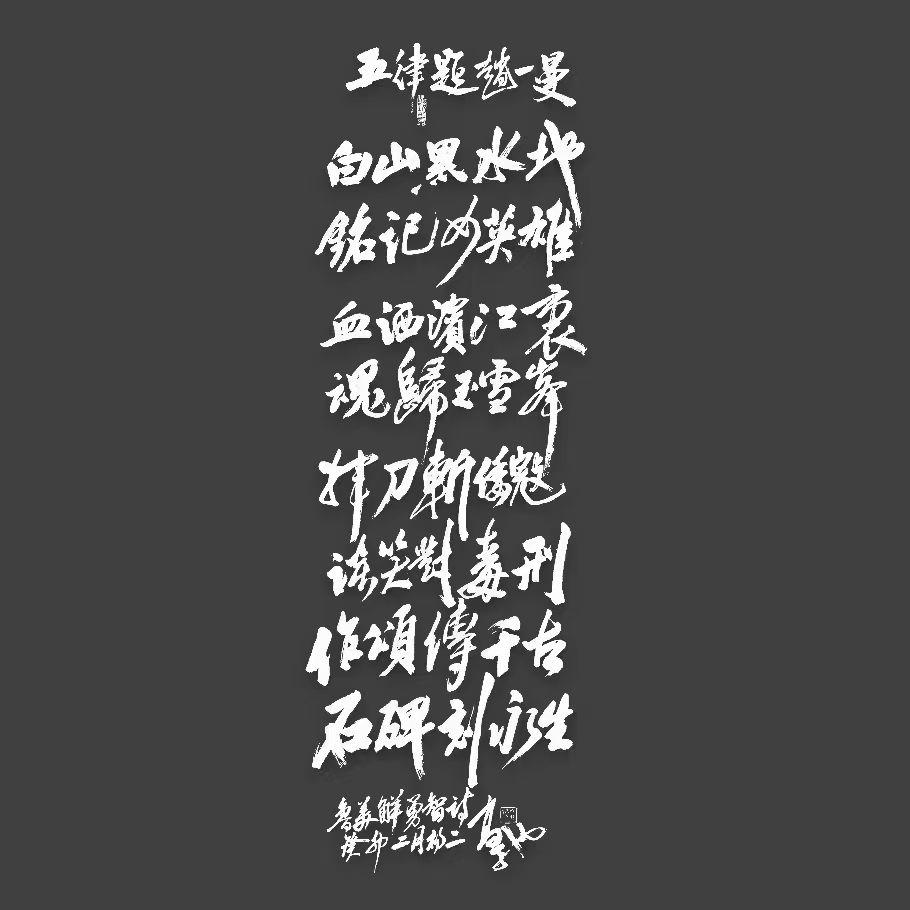 五律題趙一曼
白山黑水地
銘記女英雄
血洒濱江衷
魂歸玉雪峯
揮刀斬倭寇
談笑對毒刑
作頌傳千古
石碑刻永生
魯美鮮勇智詩
癸卯二月初二